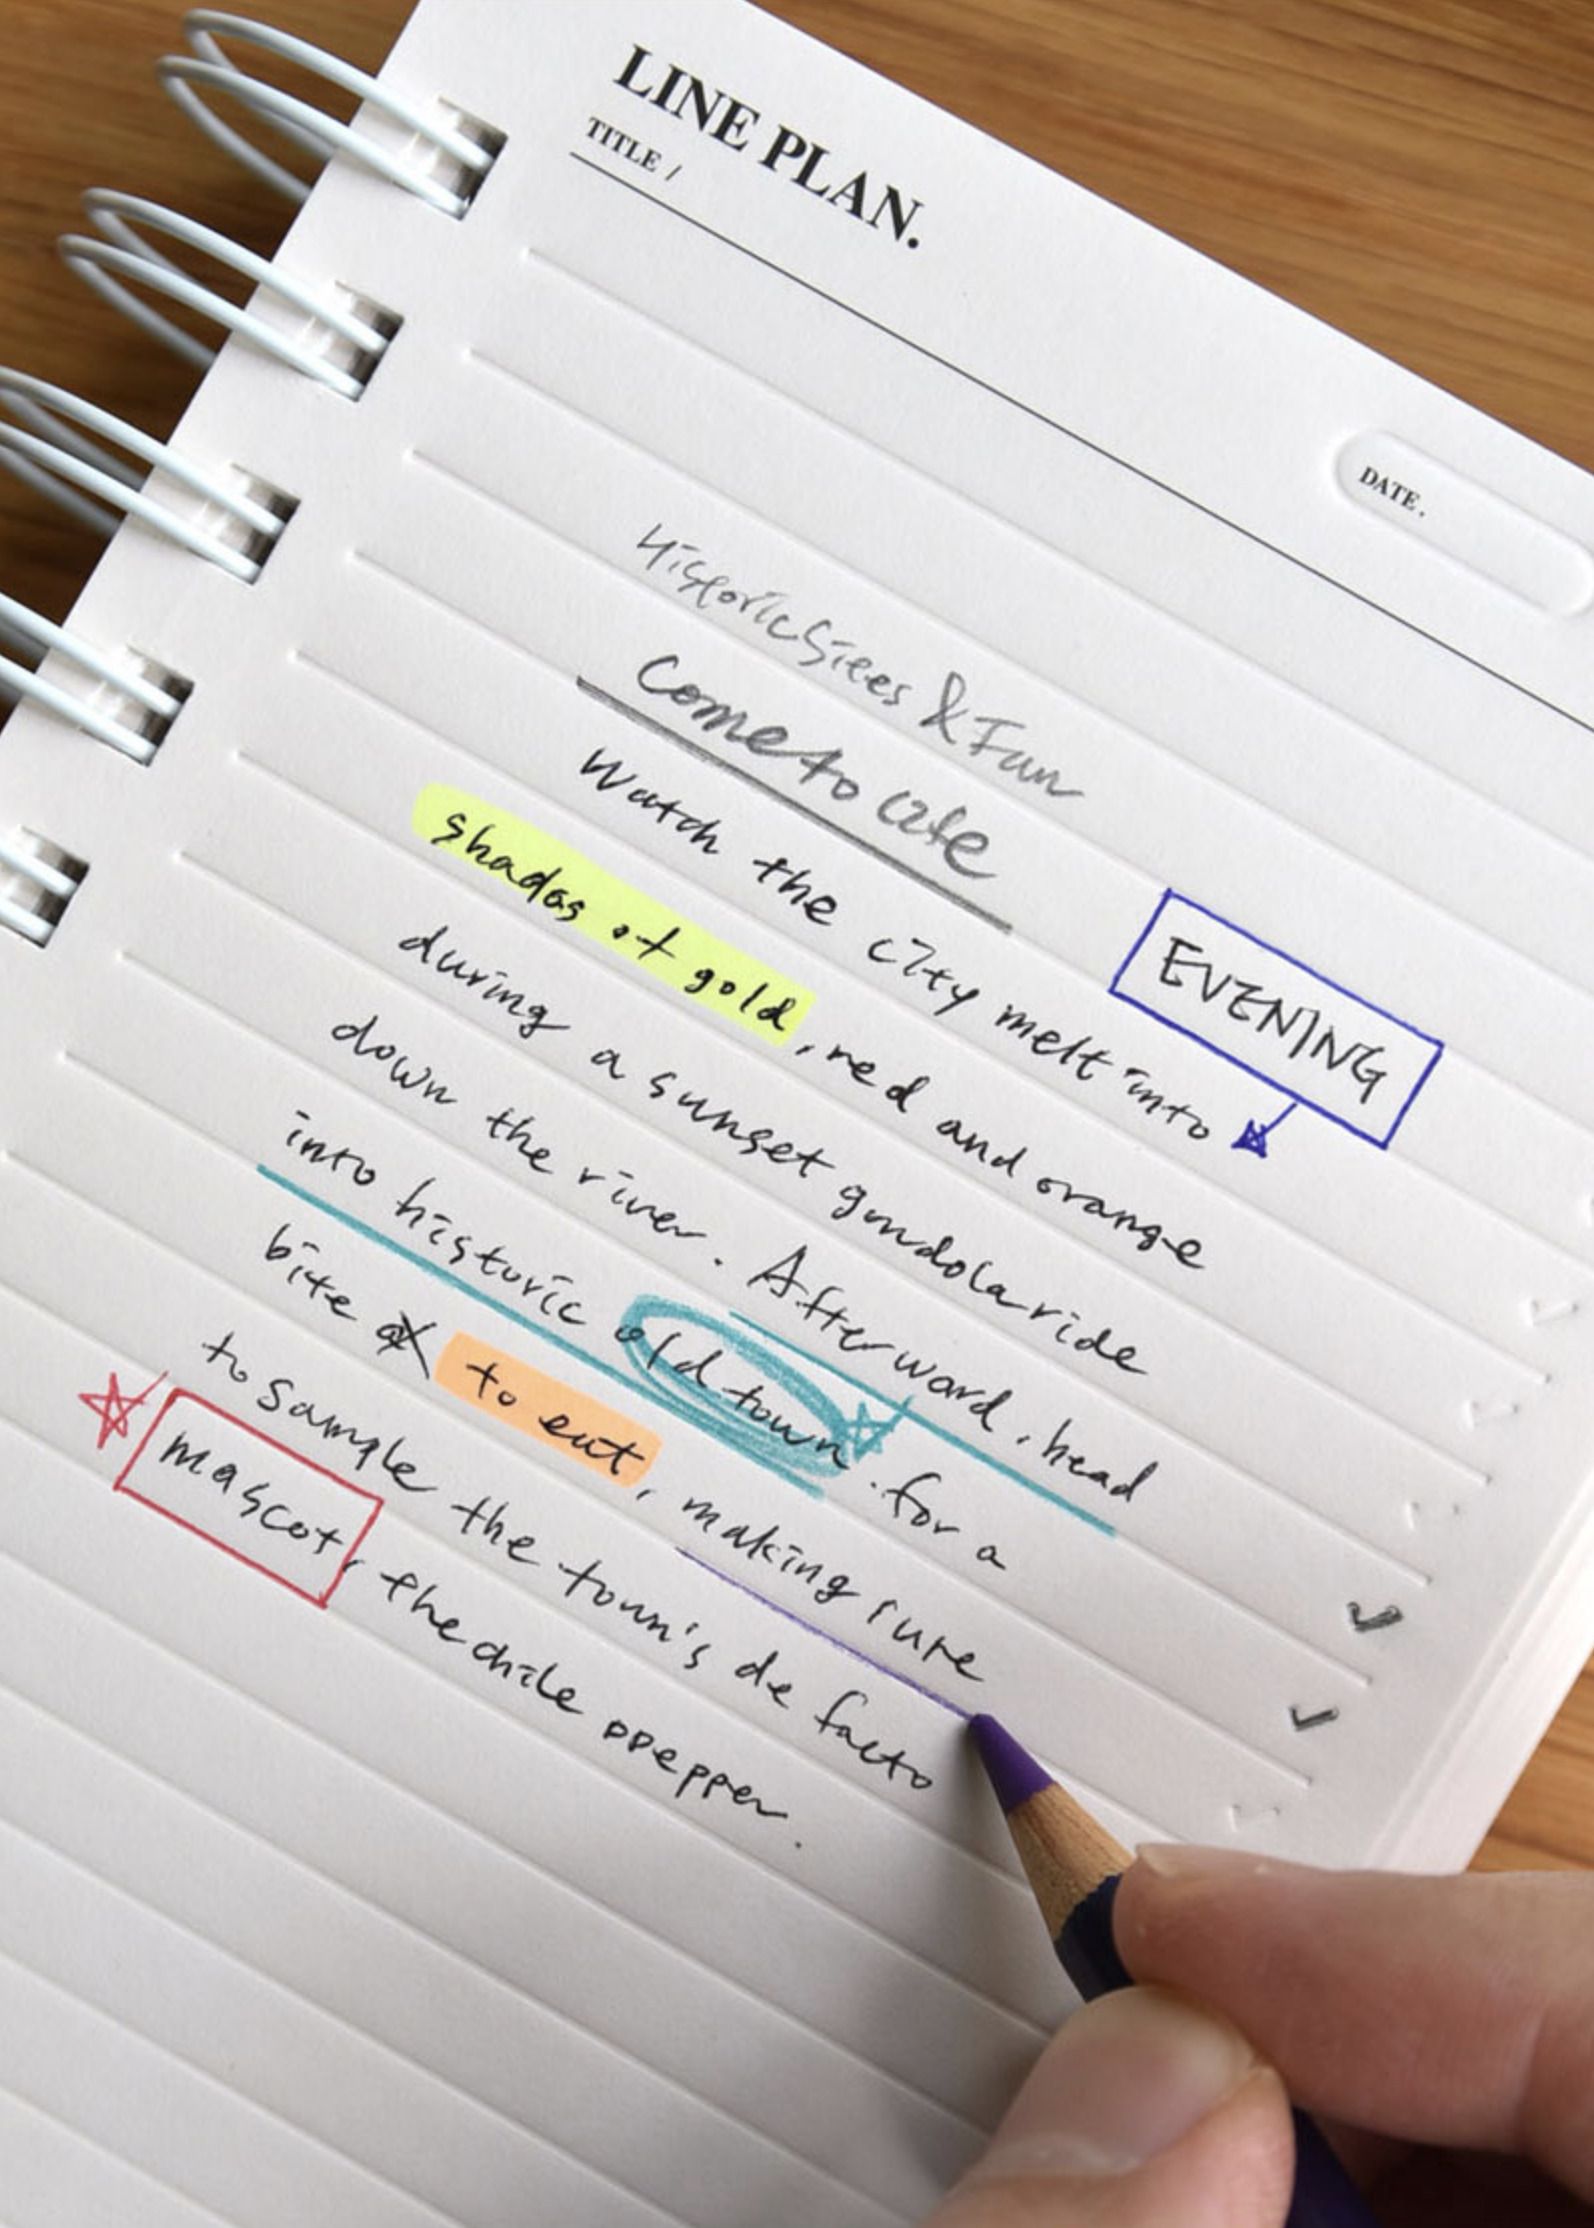 LINE PLAN.
TITLE /
DATE.
Historic Sites & Fun
Come to life
EVENING
Watch the city melt into
shades of gold, red and orange
during a sunset gondola ride
down the river. Afterward, head
into historic old town. for a
bite to eat, making sure
to sample the town's de facto
mascot, the chile ppepper.